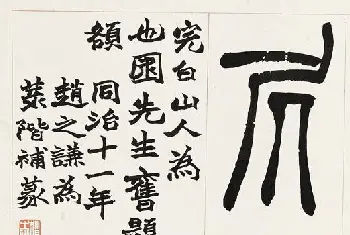 完白山人為
也園先生舊題
額 同治十一年
趙之謙為
階補篆